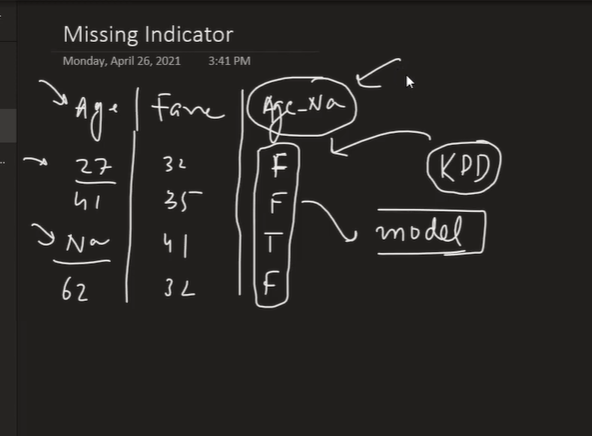 Missing Indicator
Monday, April 26, 2021 3:41 PM
Age Fare Age_Na
27 32 F
41 35 F
Na 41 T
62 32 F
KDD
model